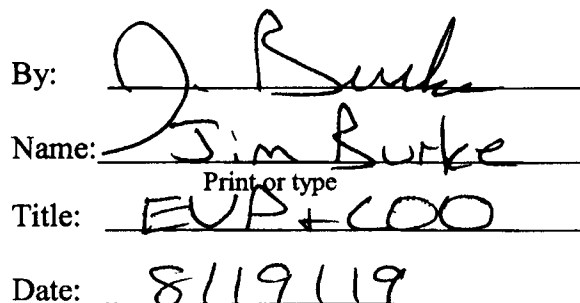 By: J. Burke
Name: Jim Burke
Print or type
Title: EVP + COO
Date: 8/19/19